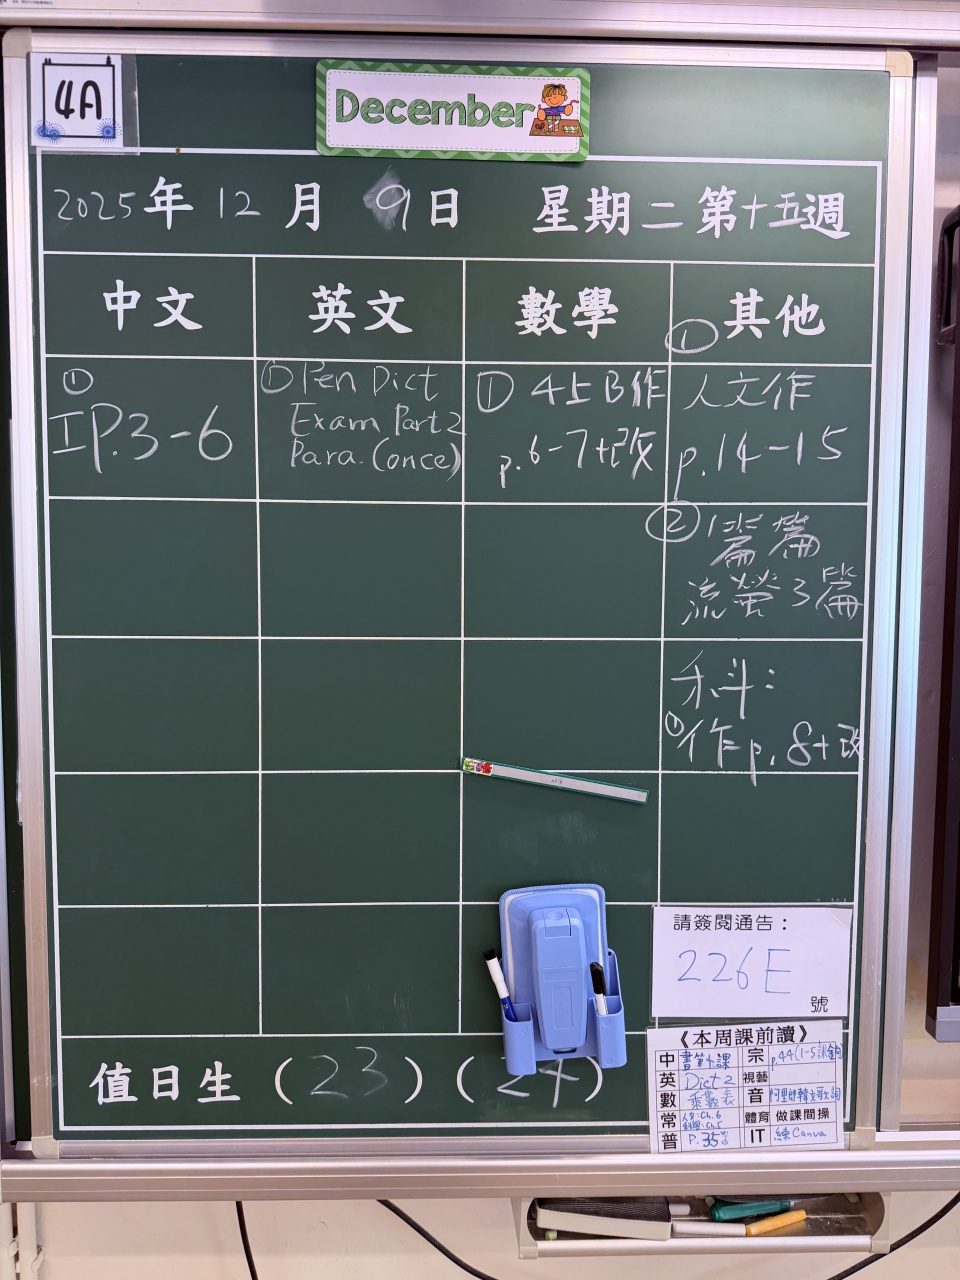 4A
December
2025年12月9日 星期二 第十五週
中文 英文 數學 其他
①
IP.3-6
① Pen Dict
Exam Part 2
Para. (once)
① 4上B作
p.6-7+改
①
人文作
p.14-15
② 1篇篇
流螢3篇
科:
①作p.8+改
請簽閱通告：
226E
號
值日生 (23) (24)
《本周課前讀》
中 書第七課
宗 p.44(1-5課金句)
英 Dict 2
視藝
數 乘數表
音
常 人文:Ch.6
科學:Ch.5
體育 做課間操
普 P.35
IT 練Canva